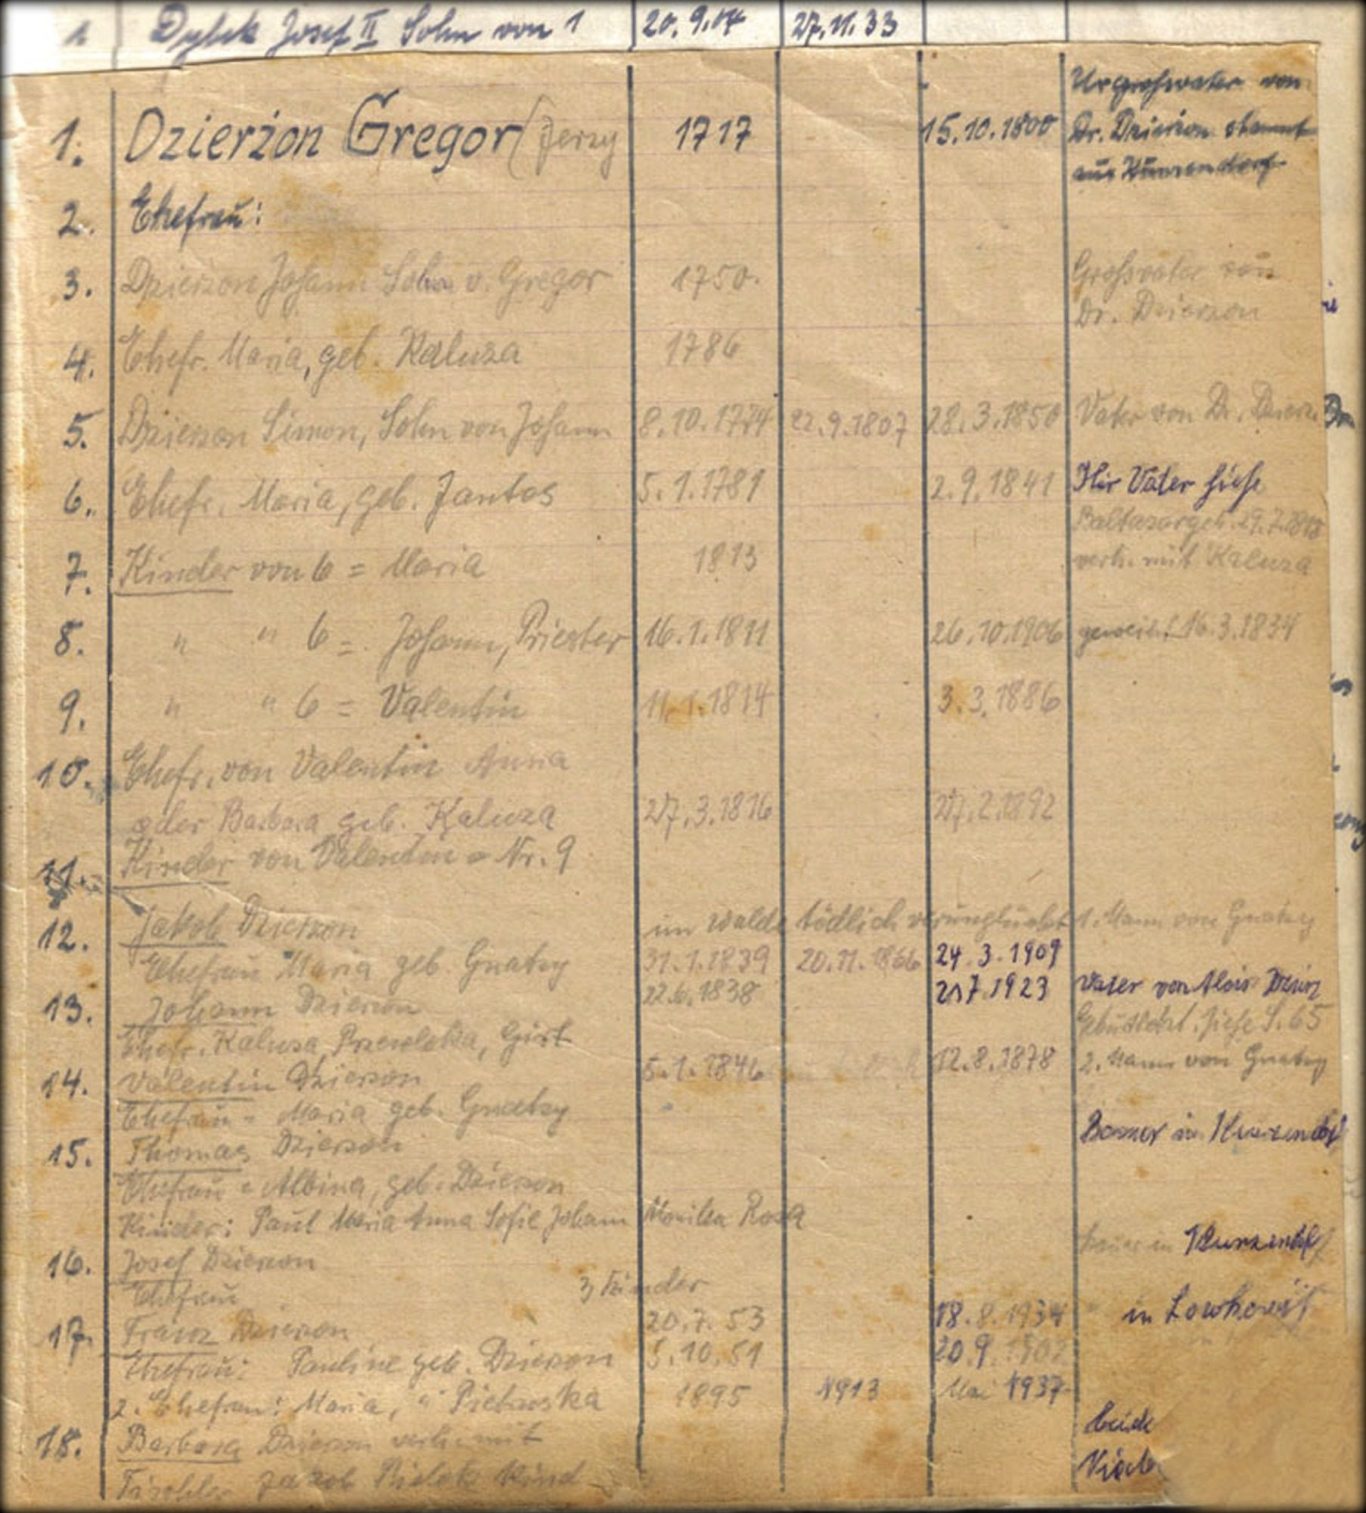 1 Dylek Josef II Sohn von 1 20.9.04 27.11.33
1. Dzierżon Gregor (Jerzy 1717 15.10.1800 Urgrofsvater von
Dr. Dzierzon stammt
aus Kunzendorf
2. Ehefrau:
3. Dzierzon Johann Sohn v. Gregor 1750. Grofsvater von
Dr. Dzierzon
4. Ehefr. Maria, geb. Kaluza 1786
5. Dzierzon Simon, Sohn von Johann 8.10.1774 22.9.1807 28.3.1850 Vater von Dr. Dzierzo
6. Ehefr. Maria, geb. Jantos 5.1.1781 2.9.1841 Ihr Vater hiefs
Baltasar geb.
7. Kinder von 6 = Maria 1813 verh. mit Kaluza
8. " " 6 = Johann, Priester 16.1.1811 26.10.1906 geweiht 16.3.1834
9. " " 6 = Valentin 11.1.1814 3.3.1886
10. Ehefr. von Valentin Anna
oder Barbara geb. Kaluza 27.3.1816 27.2.1892
11. Kinder von Valentin = Nr. 9
12. Jakob Dzierzon im Walde tödlich verunglückt 1. Mann von Gnatzy
Ehefrau Maria geb. Gnatzy 31.1.1839 20.11.1866 24.3.1909
13. Johann Dzierzon 22.6.1838 7.1923 Vater von Alois Dzierz
Ehefr. Kaluza, Girt Geburtsort. siehe S. 65
14. Valentin Dzierzon 5.1.1846 12.8.1878 2. Mann von Gnatzy
Ehefrau = Maria geb. Gnatzy
15. Thomas Dzierzon Bauer in Kunzendorf
Ehefrau = Albina, geb. Dzierzon
Kinder: Paul Maria Anna Sofie Johann Monika Rosa
16. Josef Dzierzon Bauer in Kunzendf
Ehefrau 3 Kinder
17. Franz Dzierzon 20.7.53 18.8.1934 " in Lowkowitz
Ehefrau: Pauline geb. Dzierzon 5.10.51 20.9.1902
2. Ehefrau: Maria, " Pietruska 1895 1913 Mai 1937
18. Barbara Dzierzon verh. mit beide
Tischler Jakob Kind